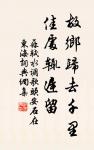 故鄉歸去千里
佳處輒遲留
蘇軾水調歌頭安石在
東海詞典網集